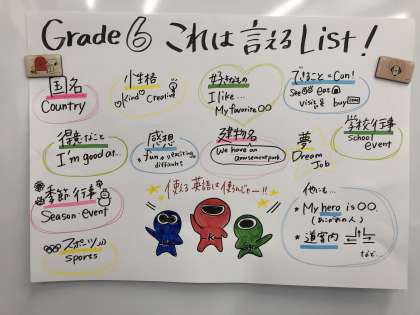 Grade ⑥ これは言える List!
国名
Country
小生格
kind Creative
好きなもの
I like...
My favorite ○○
できること=Can!
See eat
visit buy
得意なこと
I'm good at...
感想
fun exciting
difficult
建物名
We have an
amusement park
夢
Dream
Job
学校行事
School
event
季節行事
Season-event
スポーツ
Sports
使える英語は使うんじゃー!!
他にも...
・My hero is ○○.
(あこがれの人)
・道案内
など...